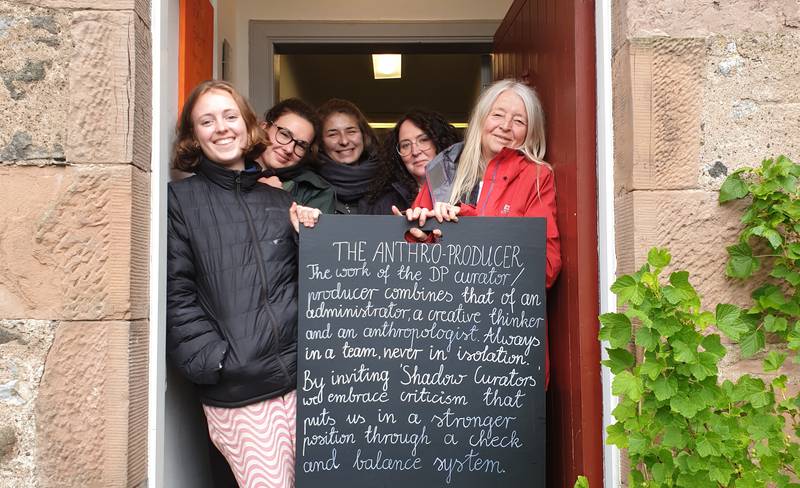 THE ANTHRO-PRODUCER
The work of the DP curator/
producer combines that of an
administrator, a creative thinker
and an anthropologist. Always
in a team, never in isolation.
By inviting 'Shadow Curators'
we embrace criticism that
puts us in a stronger
position through a check
and balance system.